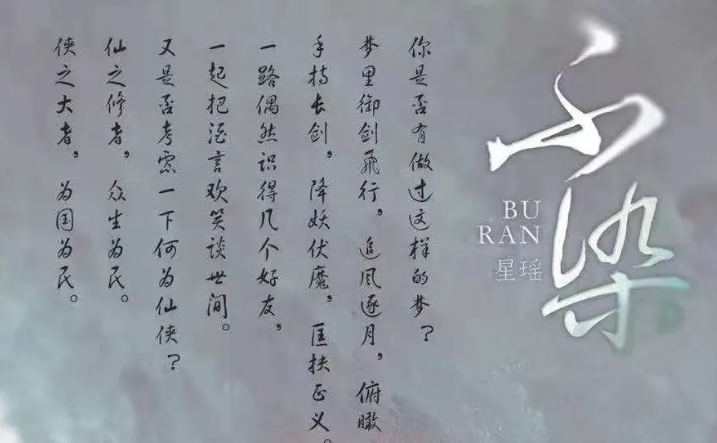 不染
BU
RAN
星瑶
你是否有做过这样的梦？
梦里御剑飞行，追风逐月，俯瞰
手持长剑，降妖伏魔，匡扶正义。
一路偶然识得几个好友，
一起把酒言欢笑谈世间。
又是否考虑一下何为仙侠？
仙之修者，众生为民。
侠之大者，为国为民。